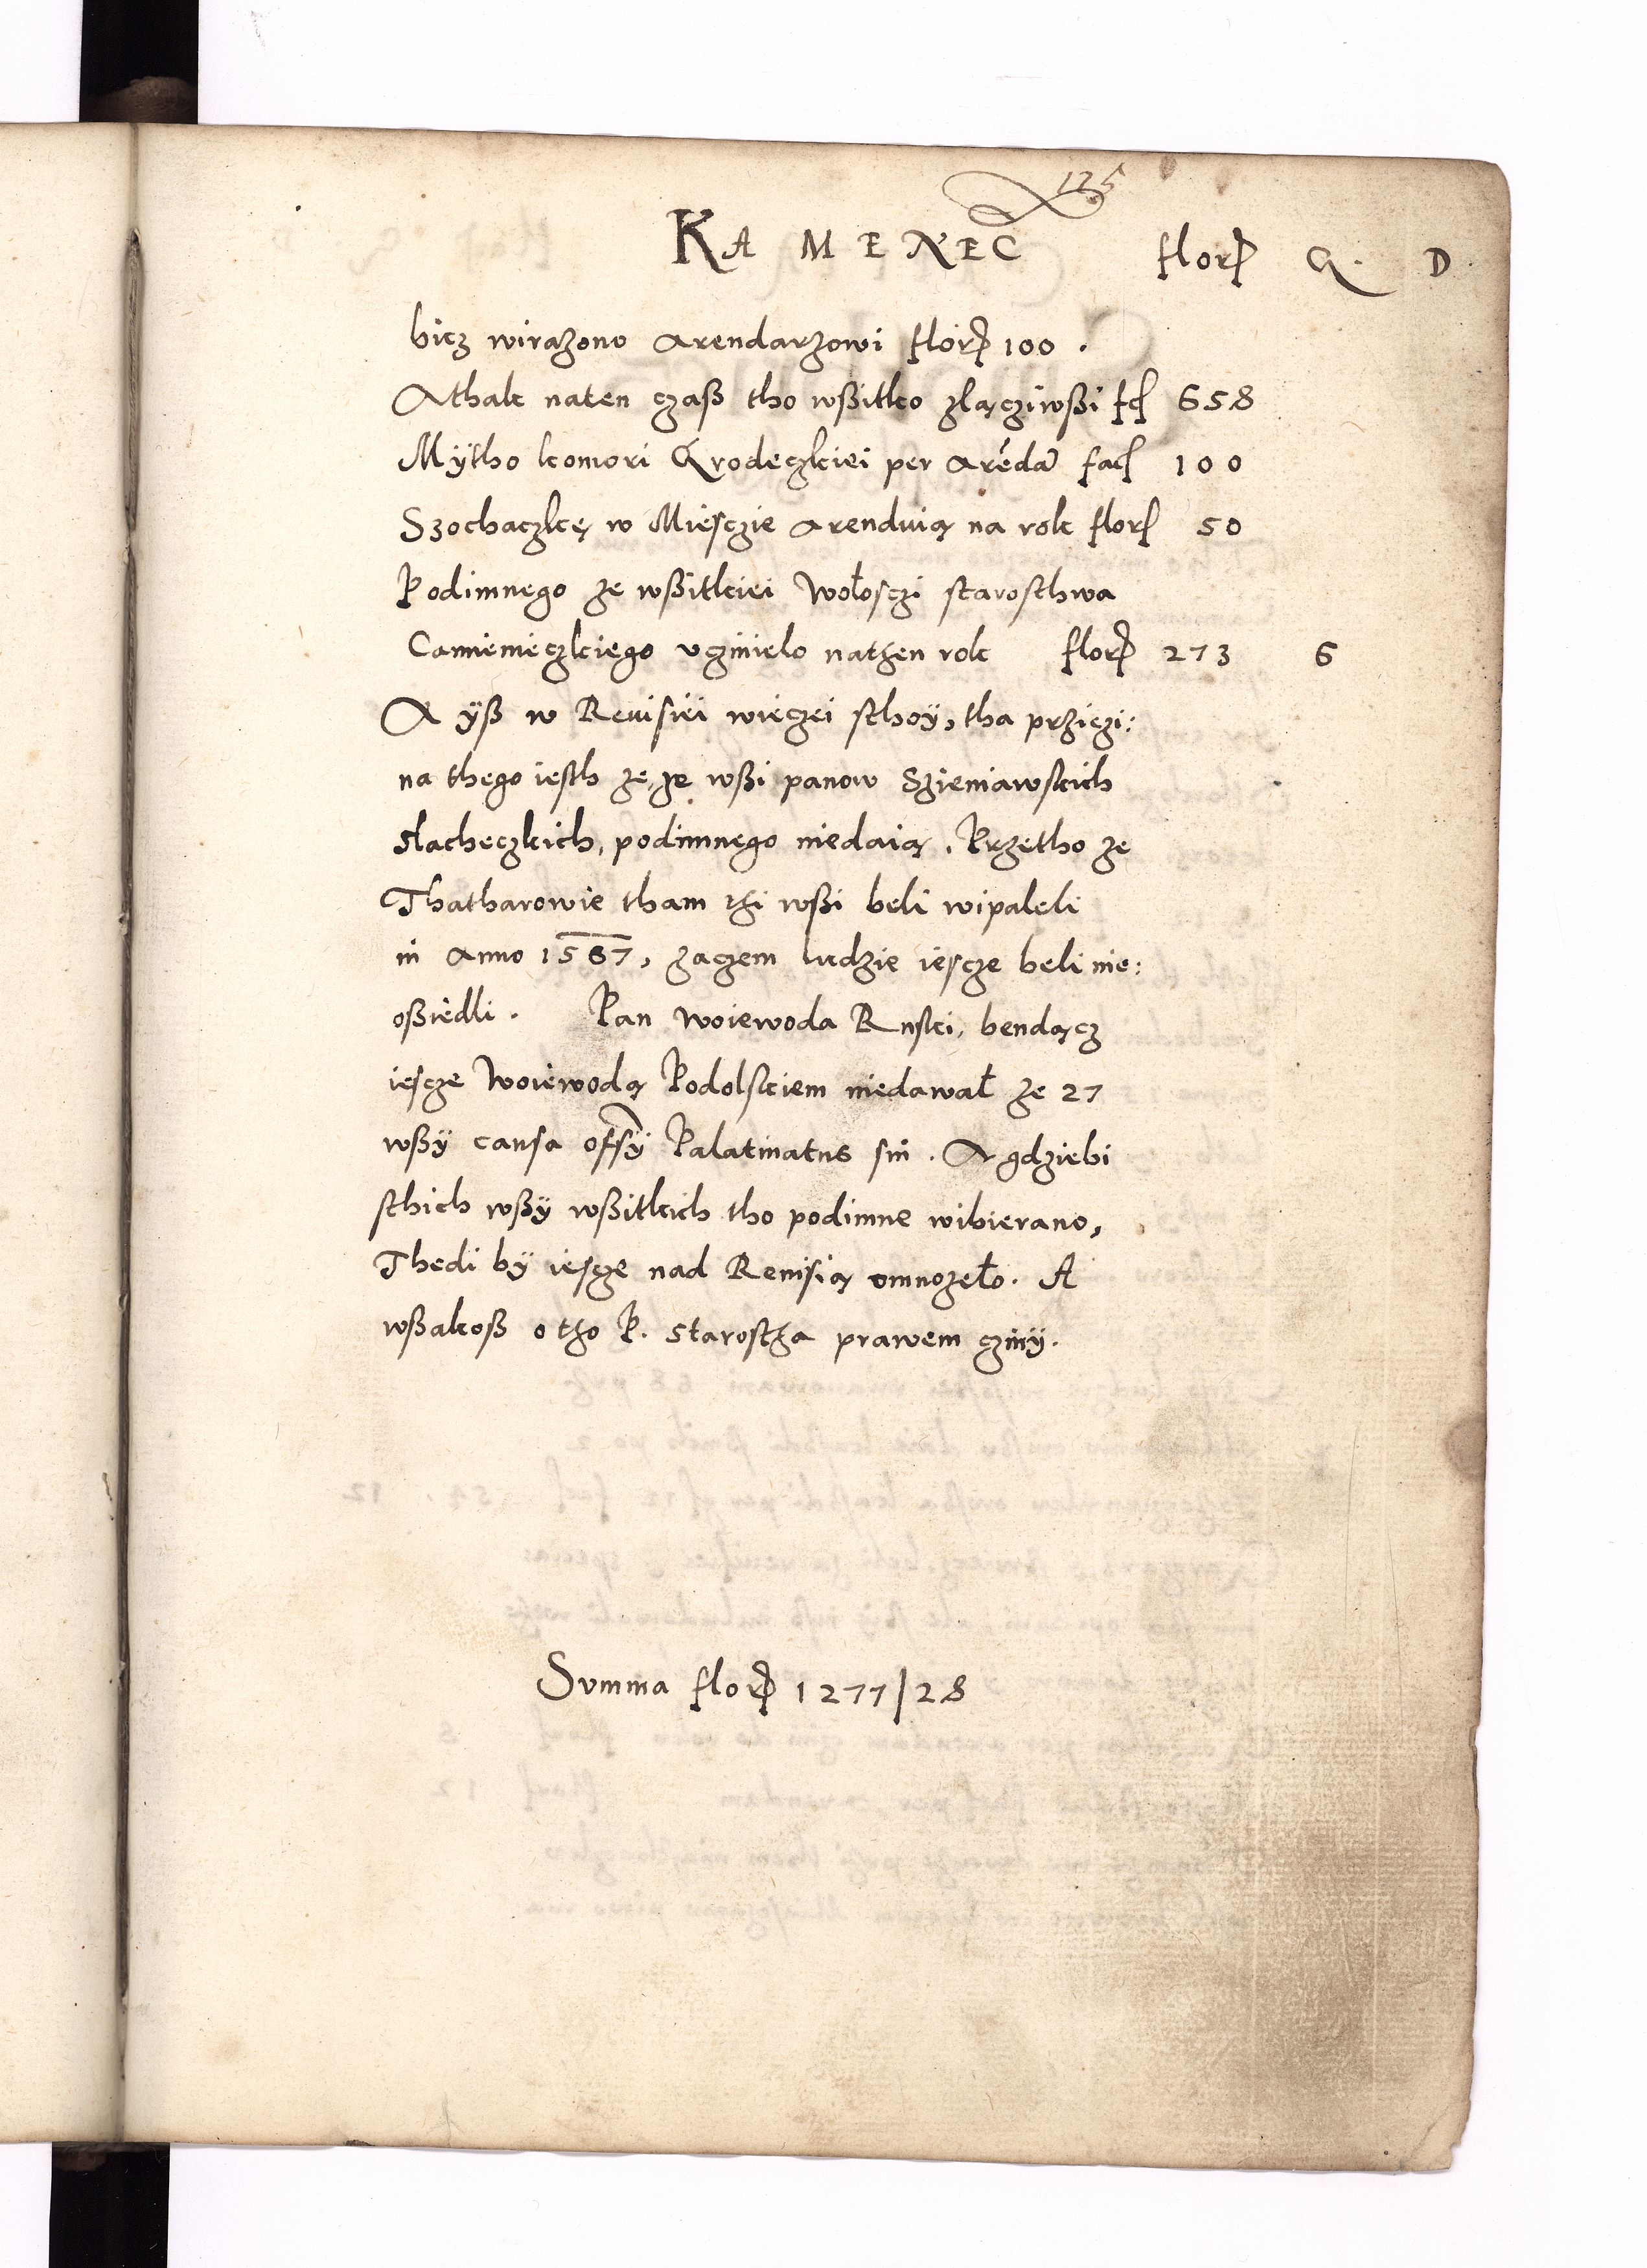 125
KAMENEC flor G. D.
bicz wirażono arendarzowi flor 100.
Athak naten czaß tho wßitko złącziwßi fl 658
Mÿtho komori Grodeczkiei per arēdā fac 100
Szochaczkę w Miesczie arenduią na rok flor 50
Podimnego ze wßitkiei Włosczi starosthwa
Camienieczkiego vczinielo nathen rok flor 273 6
A ÿß w Reuisiei wieczei sthoÿ, tha prziczi:
na thego iesth że ze wßi panow Szieniawskich
slacheczkich, podimnego niedaią. Przetho że
Thatharowie tham thi wßi beli wipaleli
in anno 1567, zaczem ludzie iescze beli nie:
oßiedli. Pan Woiewoda Ruski, bendącz
iescze Woiewodą Podolskiem niedawał ze 27
wßÿ causa offÿ Palatinatus sui. A gdziebi
sthich wßÿ wßitkich tho podimne wibierano,
Thedi bÿ iescze nad Reuisią omnozeło. A
wßakoß o tho P. starostha prawem czinÿ.
Summa flor 1277/28